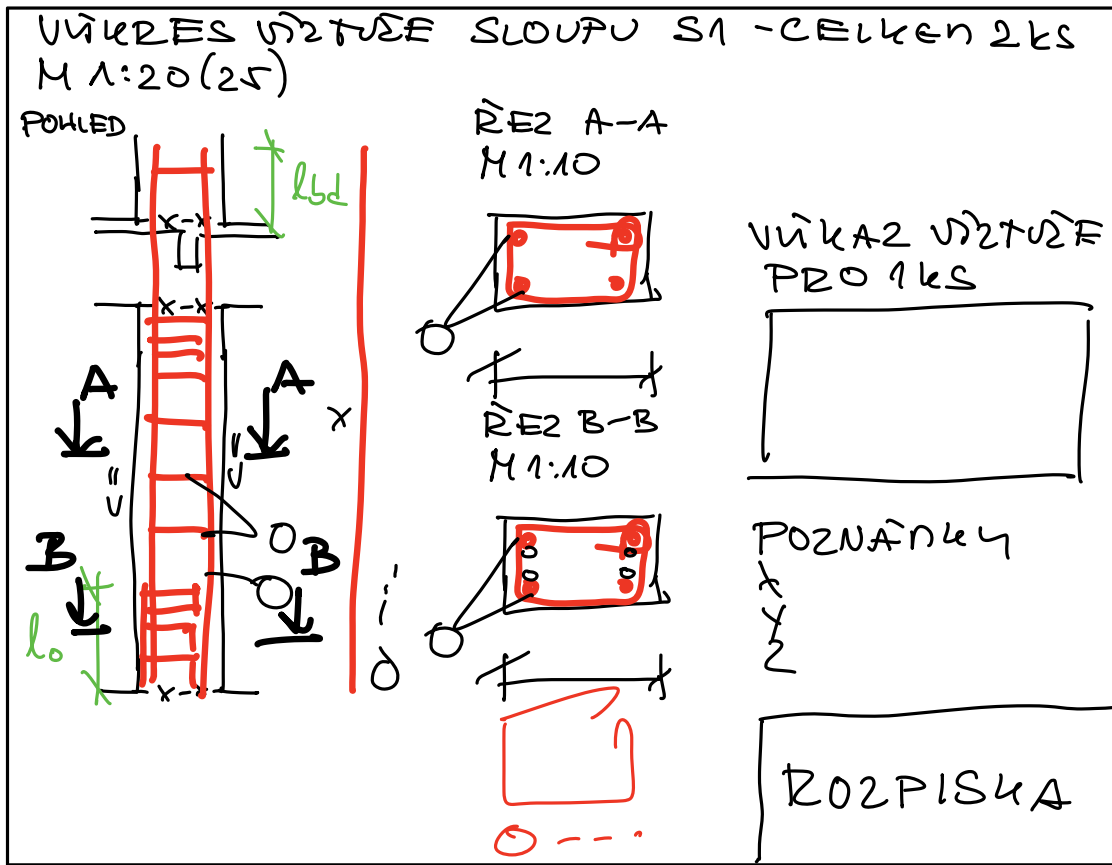 VÝKRES VÝZTUŽE SLOUPU S1 - CELKEM 2 KS
M 1:20 (25)
POHLED
lbd
A A
B B
lo
x
ŘEZ A-A
M 1:10
ŘEZ B-B
M 1:10
VÝKAZ VÝZTUŽE
PRO 1 KS
POZNÁMKY
X
Y
Z
ROZPISKA